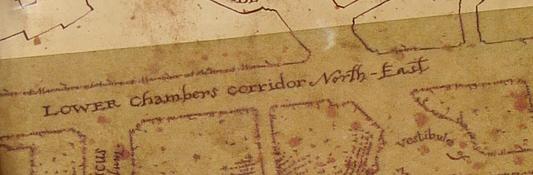 LOWER Chambers corridor North-East
vestibule